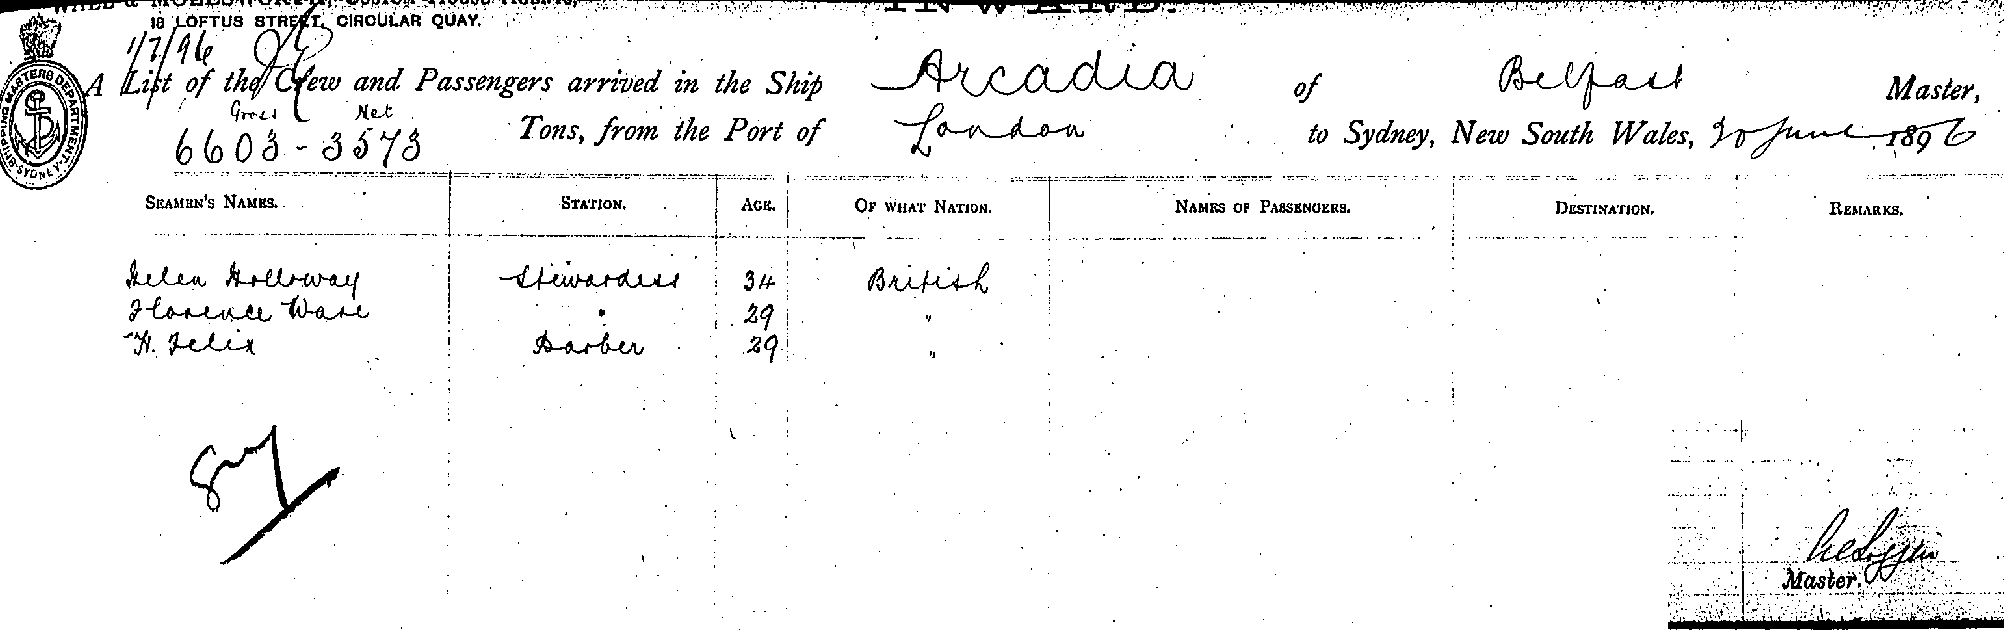 18 LOFTUS STREET, CIRCULAR QUAY.
1/7/96
SHIPPING MASTERS DEPARTMENT SYDNEY
A List of the Crew and Passengers arrived in the Ship Arcadia of Belfast Master,
Gross Net
6603 - 3573 Tons, from the Port of London to Sydney, New South Wales, 30 June 1896
SEAMEN'S NAMES. STATION. AGE. OF WHAT NATION. NAMES OF PASSENGERS. DESTINATION. REMARKS.
Helen Holloway Stewardess 34 British
Florence Ware " 29 "
H. Felix Barber 29 "
Master.